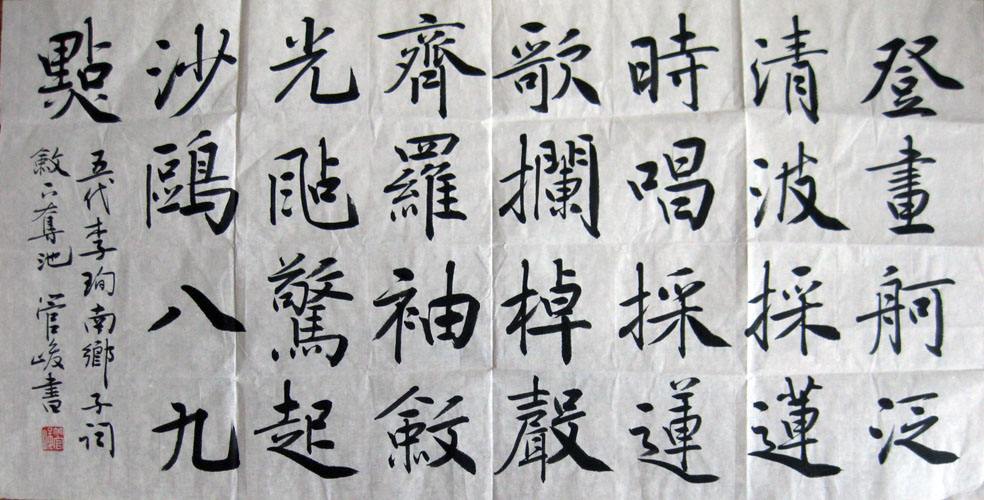 登畫舸泛
清波採蓮
時唱採蓮
歌攔棹聲
齊羅袖斂
光颭驚起
沙鷗八九
點
五代李珣南鄉子詞
斂下奪池 管峻書